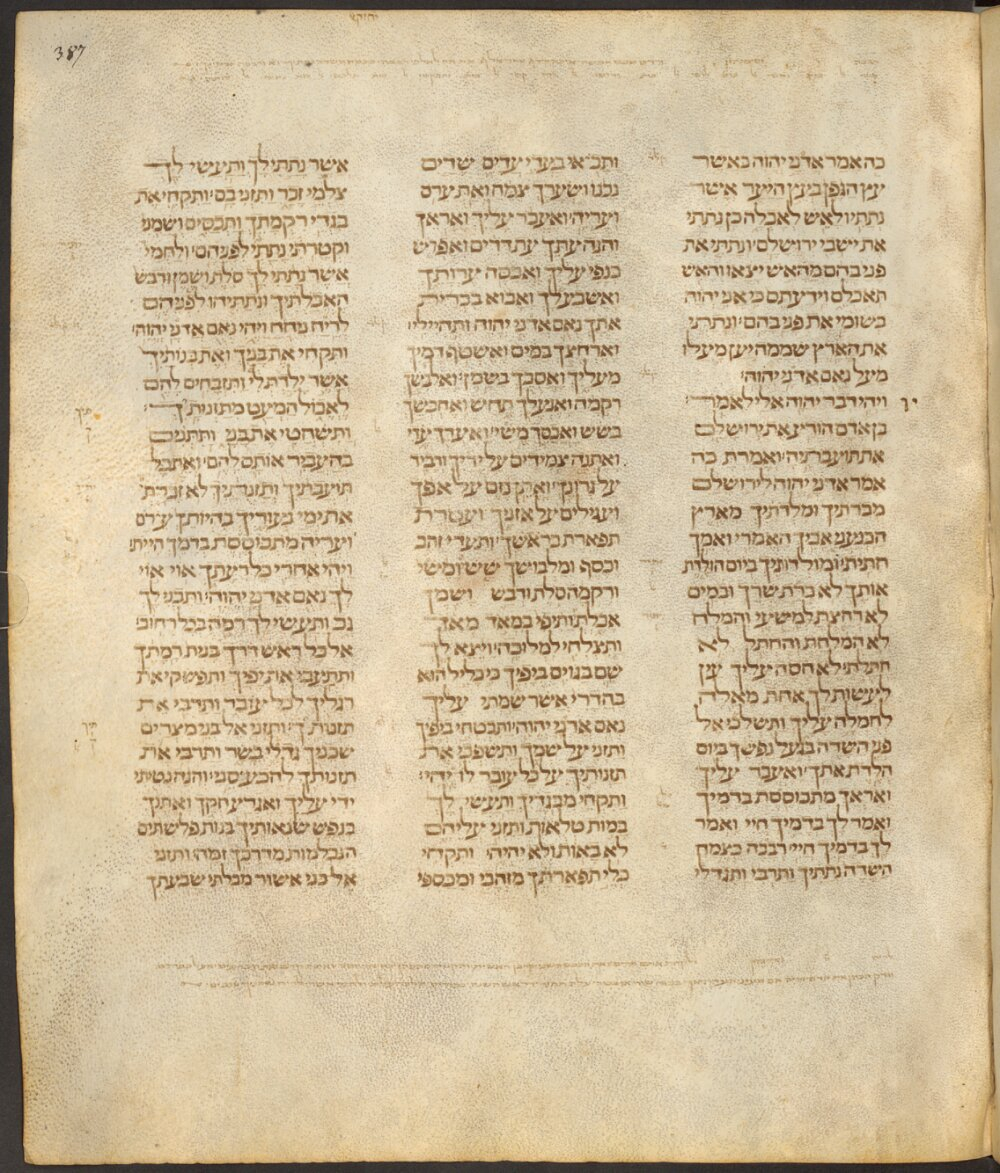 387
יחזקא
כה אמר אדני יהוה כאשר
עץ הגפן בעץ היער אשר
נתתיו לאש לאכלה כן נתתי
את ישבי ירושלם ונתתי את
פני בהם מהאש יצאו והאש
תאכלם וידעתם כי אני יהוה
בשומי את פני בהם ונתתי
את הארץ שממה יען מעלו
מעל נאם אדני יהוה
ויהי דבר יהוה אלי לאמר
בן אדם הודיע את ירושלם
את תועבתיה ואמרת כה
אמר אדני יהוה לירושלם
מכרתיך ומלדתיך מארץ
הכנעני אביך האמרי ואמך
חתית ומולדותיך ביום הולדת
אותך לא כרת שרך ובמים
לא רחצת למשעי והמלח
לא המלחת והחתל לא
חתלת לא חסה עליך עין
לעשות לך אחת מאלה
לחמלה עליך ותשלכי אל
פני השדה בגעל נפשך ביום
הלדת אתך ואעבר עליך
ואראך מתבוססת בדמיך
ואמר לך בדמיך חיי ואמר
לך בדמיך חיי רבבה כצמח
השדה נתתיך ותרבי ותגדלי
ותבאי בעדי עדים שדים
נכנו ושערך צמח ואת ערם
ועריה ואעבר עליך ואראך
והנה עתך עת דדים ואפרש
כנפי עליך ואכסה ערותך
ואשבע לך ואבוא בברית
אתך נאם אדני יהוה ותהיי לי
וארחצך במים ואשטף דמיך
מעליך ואסכך בשמן ואלבשך
רקמה ואנעלך תחש ואחבשך
בשש ואכסך משי ואעדך עדי
ואתנה צמידים על ידיך ורביד
על גרונך ואתן נזם על אפך
ועגילים על אזניך ועטרת
תפארת בראשך ותעדי זהב
וכסף ומלבושך שש ומשי
ורקמה סלת ודבש ושמן
אכלת ותיפי במאד מאד
ותצלחי למלוכה ויצא לך
שם בגוים ביפיך כי כליל הוא
בהדרי אשר שמתי עליך
נאם אדני יהוה ותבטחי ביפיך
ותזני על שמך ותשפכי את
תזנותיך על כל עובר לו יהי
ותקחי מבגדיך ותעשי לך
במות טלאות ותזני עליהם
לא באות ולא יהיה ותקחי
כלי תפארתך מזהבי ומכספי
אשר נתתי לך ותעשי לך
צלמי זכר ותזני בם ותקחי את
בגדי רקמתך ותכסים ושמני
וקטרתי נתתי לפניהם ולחמי
אשר נתתי לך סלת ושמן ודבש
האכלתיך ונתתיהו לפניהם
לריח ניחח ויהי נאם אדני יהוה
ותקחי את בניך ואת בנותיך
אשר ילדת לי ותזבחים להם
לאכול המעט מתזנותיך
ותשחטי את בני ותתנים
בהעביר אותם להם ואת כל
תועבתיך ותזנתיך לא זכרת
את ימי נעוריך בהיותך ערם
ועריה מתבוססת בדמך היית
ויהי אחרי כל רעתך אוי אוי
לך נאם אדני יהוה ותבני לך
גב ותעשי לך רמה בכל רחוב
אל כל ראש דרך בנית רמתך
ותתעבי את יפיך ותפשקי את
רגליך לכל עובר ותרבי את
תזנותיך ותזני אל בני מצרים
שכניך גדלי בשר ותרבי את
תזנותך להכעיסני והנה נטיתי
ידי עליך ואגרע חקך ואתנך
בנפש שנאותיך בנות פלשתים
הנכלמות מדרכך זמה ותזני
אל בני אשור מבלתי שבעתך